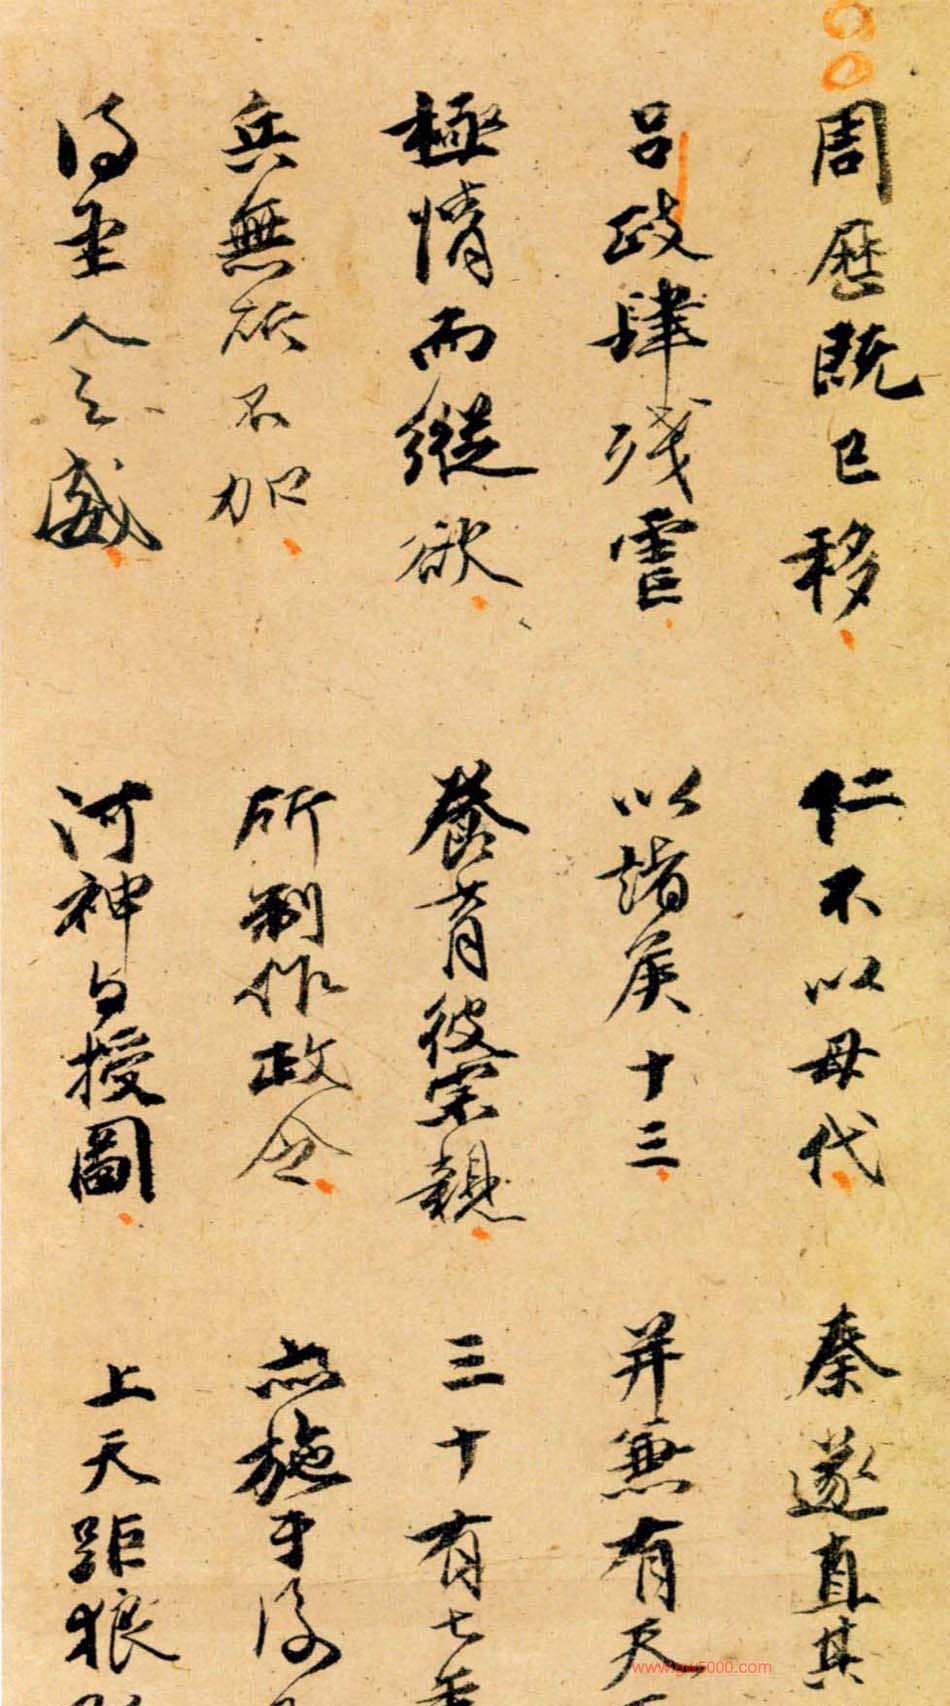 周歷既已移 仁不以母代 秦遂直其
呂政肆殘虐 以諸侯十三 并兼有天
極情而縱欲 養育彼宗親 三十有七年
兵無所不加 所制作政令 施于後
得聖人之威 河神与授圖 上天距狼
www.gw5000.com